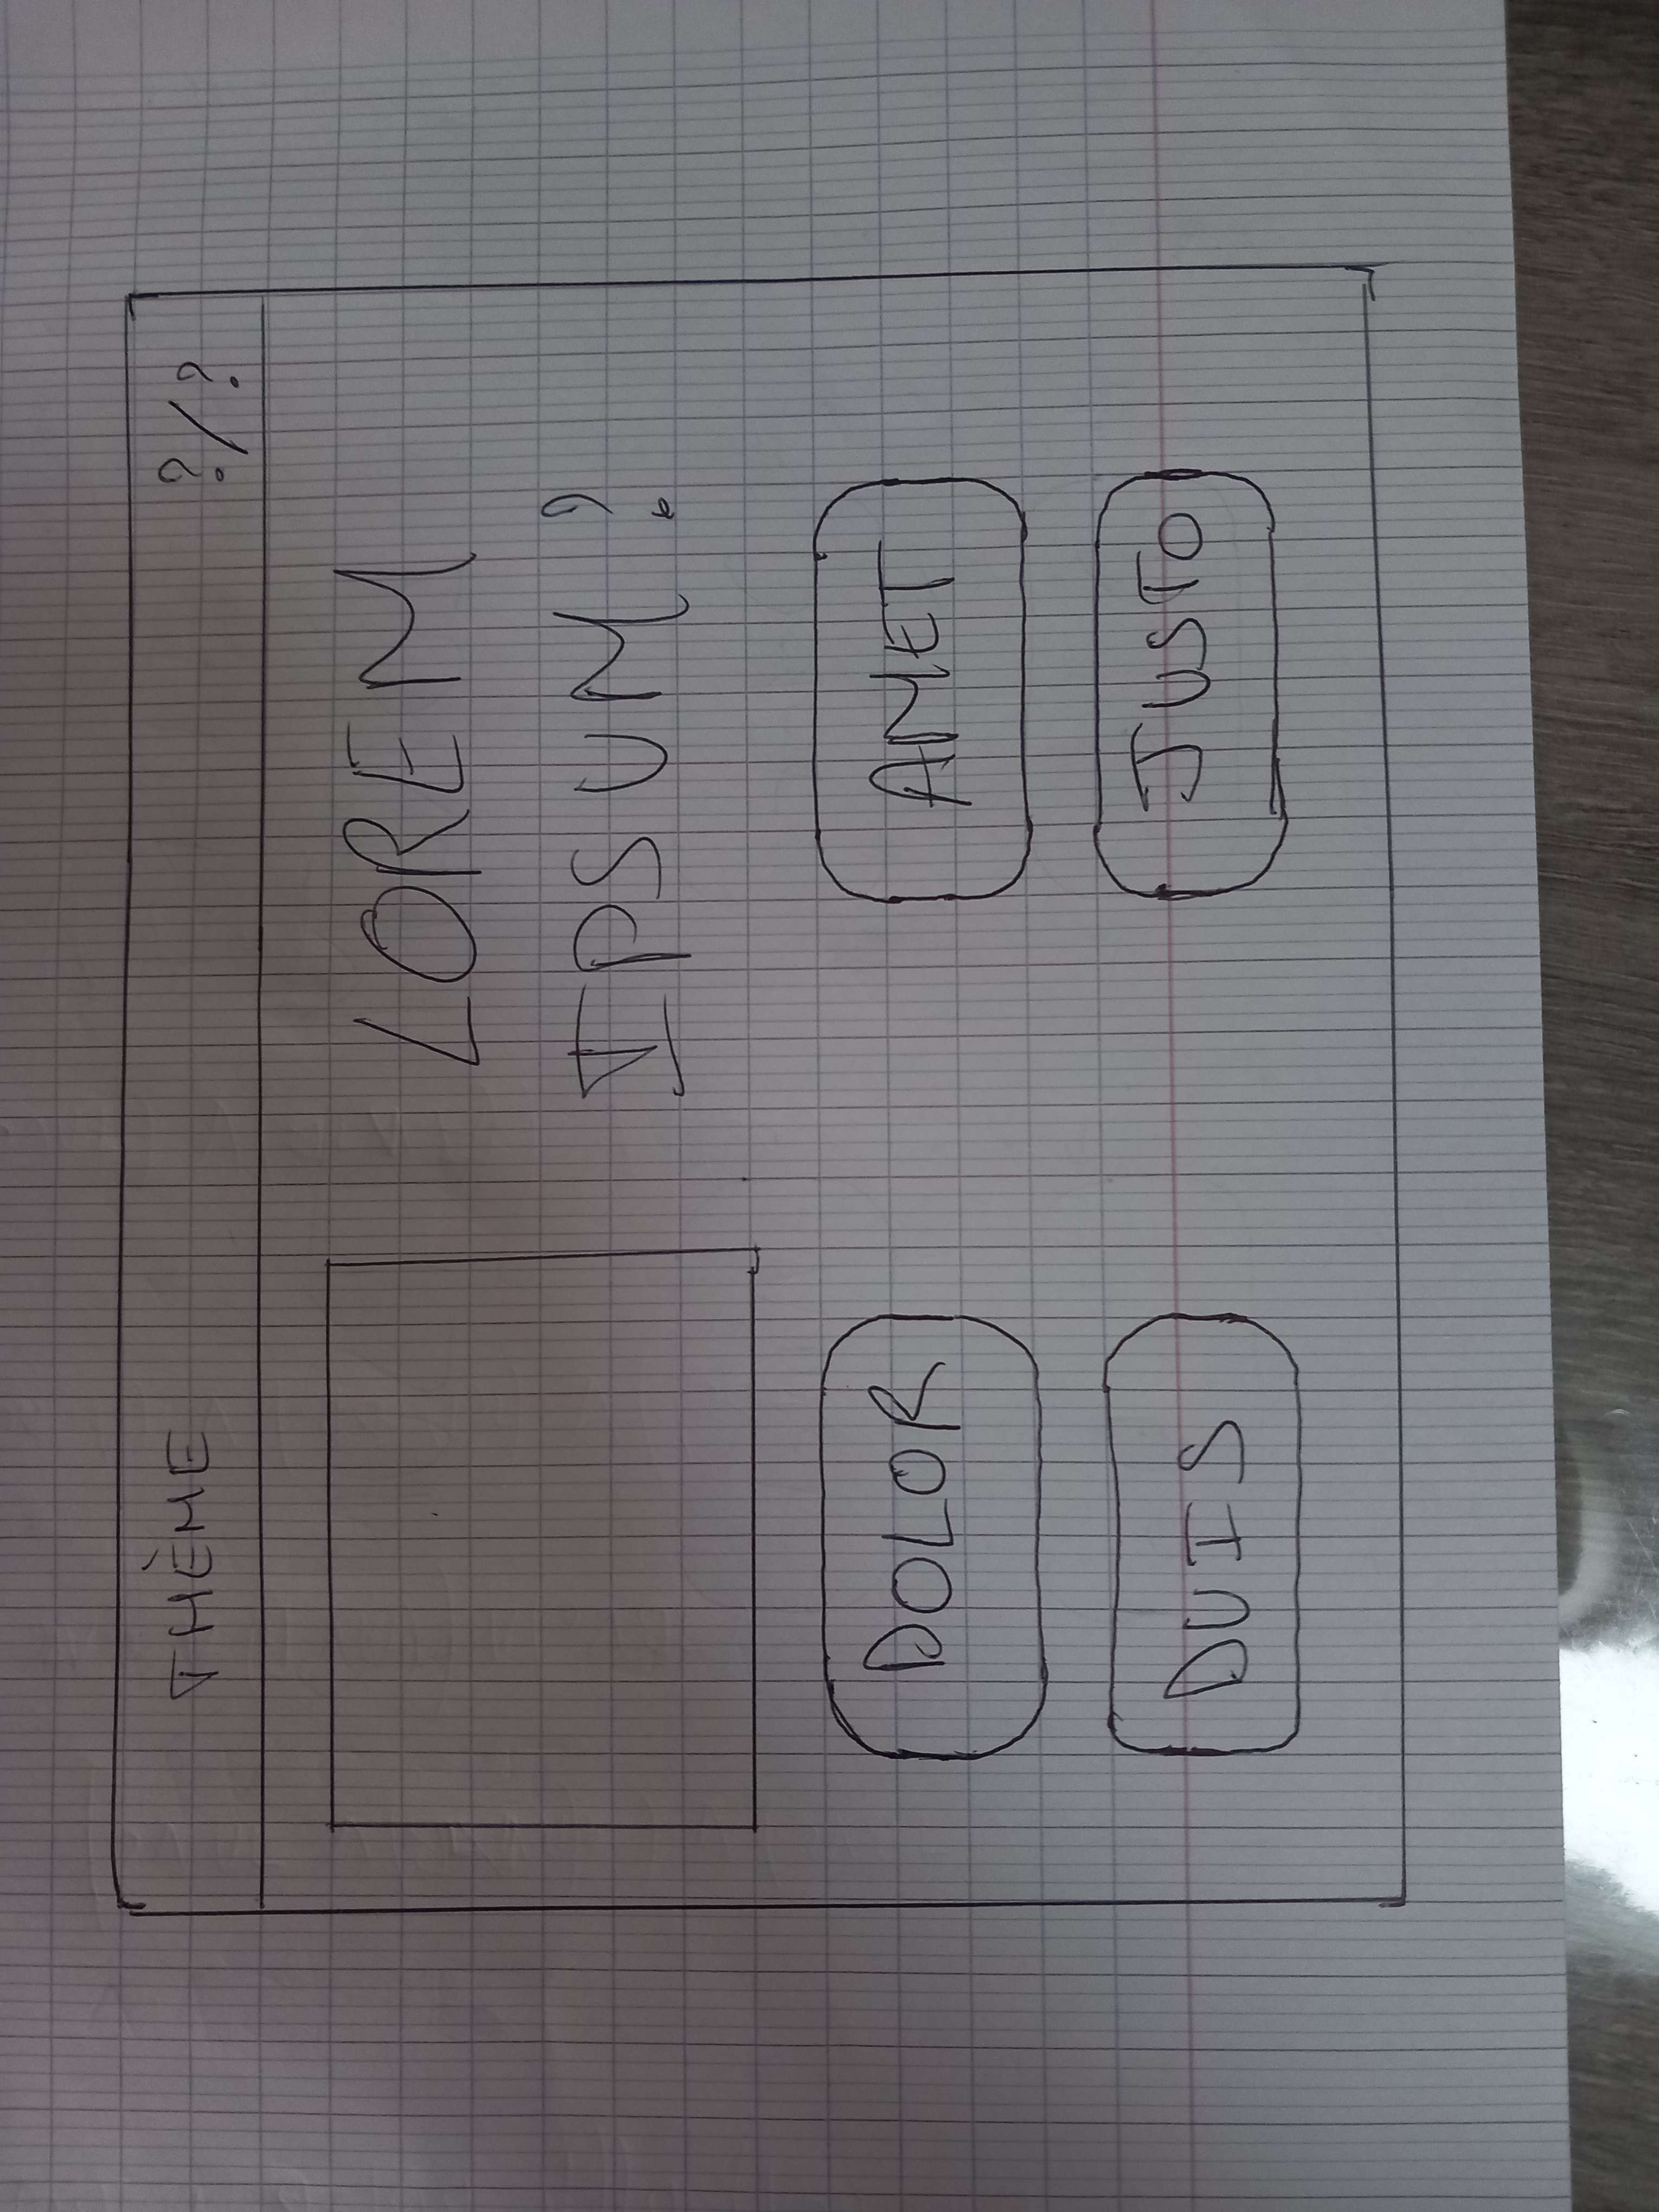 THÈME ?/?
LOREM
IPSUM?
DOLOR AMET
DUIS JUSTO